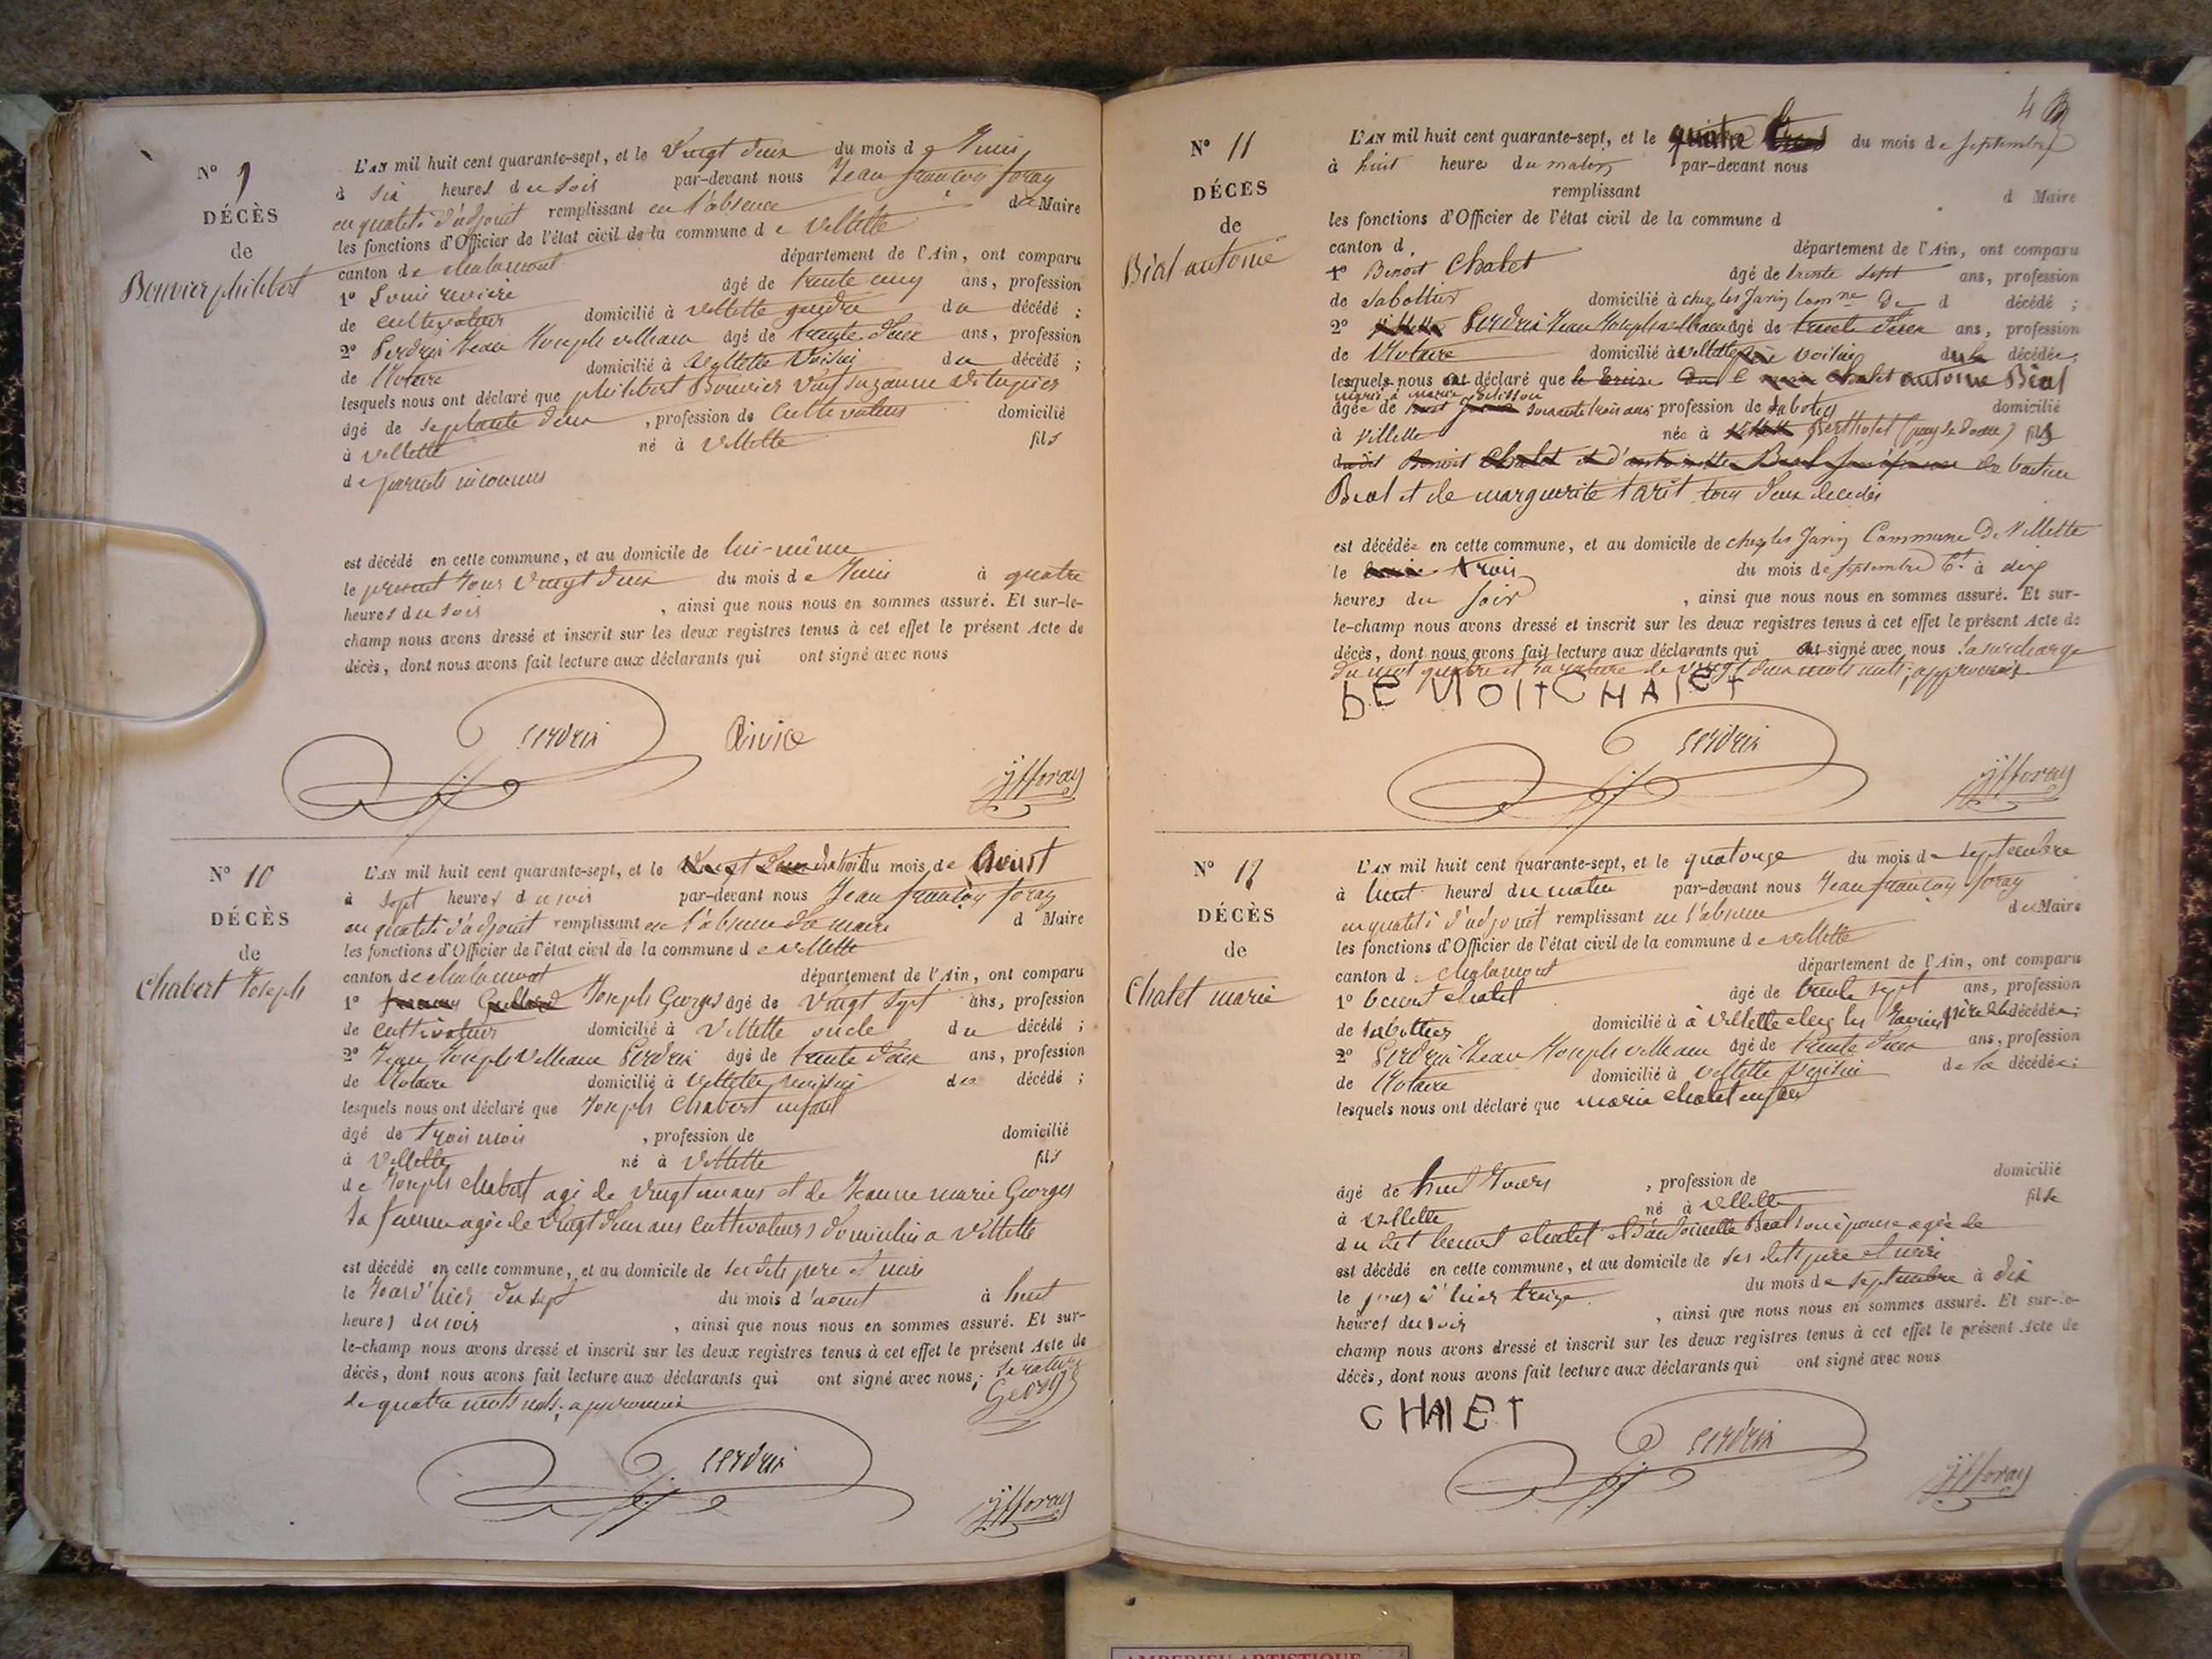 N° 9
DÉCÈS
de
Bouvier philibert
L'AN mil huit cent quarante-sept, et le Vingt deux du mois de Juin
à six heures du soir par-devant nous Jean françois foray
en qualité d'adjoint remplissant en l'absence du Maire
les fonctions d'Officier de l'état civil de la commune de Villette
canton de chalamont département de l'Ain, ont comparu
1° âgé de trente cinq ans, profession
de cultivateur domicilié à villette gendre du décédé ;
2° Perdrix Jean Joseph villeaume âgé de trente deux ans, profession
de Notaire domicilié à Villette Voisin du décédé ;
lesquels nous ont déclaré que philibert Bouvier Veuf suzanne
âgé de septante deux , profession de Cultivateur domicilié
à villette né à Villette fils
de parents inconnus
est décédé en cette commune, et au domicile de lui-même
le présent Jour Vingt deux du mois de Juin à quatre
heures du soir , ainsi que nous nous en sommes assuré. Et sur-le-
champ nous avons dressé et inscrit sur les deux registres tenus à cet effet le présent Acte de
décès, dont nous avons fait lecture aux déclarants qui ont signé avec nous
Perdrix
jfforay
N° 10
DÉCÈS
de
Chabert Joseph
L'AN mil huit cent quarante-sept, et le Vingt deux dixhuit du mois de Aout
à sept heures du soir par-devant nous Jean françois foray
en qualité d'adjoint remplissant en l'absence du maire d Maire
les fonctions d'Officier de l'état civil de la commune de villette
canton de chalamont département de l'Ain, ont comparu
1° Joseph Georges âgé de Vingt sept ans, profession
de cultivateur domicilié à Villette oncle du décédé ;
2° Jean Joseph Villeaume Perdrix âgé de trente deux ans, profession
de Notaire domicilié à Villette voisin du décédé ;
lesquels nous ont déclaré que Joseph Chabert enfant
âgé de trois mois , profession de domicilié
à Villette né à Villette fils
de Joseph chabert agé de vingt un ans et de Jeanne marie Georges
sa femme agée de Vingt deux ans Cultivateurs domiciliés a Villette
est décédé en cette commune, et au domicile de ses dits pere et mere
le Jour d'hier dix sept du mois d'aout à huit
heures du soir , ainsi que nous nous en sommes assuré. Et sur-
le-champ nous avons dressé et inscrit sur les deux registres tenus à cet effet le présent Acte de
décès, dont nous avons fait lecture aux déclarants qui ont signé avec nous, la rature
de quatre mots nuls, approuvée
Georges
Perdrix
jfforay
N° 11
DÉCÈS
de
Bial antoine
L'AN mil huit cent quarante-sept, et le quatre du mois de septembre
à huit heures du matin par-devant nous
remplissant d Maire
les fonctions d'Officier de l'état civil de la commune d
canton d département de l'Ain, ont comparu
1° Benoit Chalet âgé de trente sept ans, profession
de Sabottier domicilié à chez les Javin Comne De d décédé ;
2° Perdrix Jean Joseph villeaume âgé de trente deux ans, profession
de Notaire domicilié à villette voisin du décédé,
lesquels nous ont déclaré que antoine Bial
mari à marie
âgé de soixante trois ans profession de Sabotier domicilié
à Villette née à fils
Bial et de marguerite tarit tous deux décédés
est décédée en cette commune, et au domicile de chez les Javin Commune De Villette
le trois du mois de septembre Ct à dix
heures du soir , ainsi que nous nous en sommes assuré. Et sur-
le-champ nous avons dressé et inscrit sur les deux registres tenus à cet effet le présent Acte de
décès, dont nous avons fait lecture aux déclarants qui ont signé avec nous La surcharge
du mot quatre et la rature de vingt deux mots nuls, approuvés
BENOITCHALET
Perdrix
jfforay
N° 12
DÉCÈS
de
Chalet marie
L'AN mil huit cent quarante-sept, et le quatorze du mois de septembre
à huit heures du matin par-devant nous Jean françois foray
en qualité d'adjoint remplissant en l'absence du Maire
les fonctions d'Officier de l'état civil de la commune de villette
canton d chalamont département de l'Ain, ont comparu
1° benoit chalet âgé de trente sept ans, profession
de sabottier domicilié à à Villette chez les Javin père de la décédée;
2° Perdrix Jean Joseph villeaume âgé de trente deux ans, profession
de Notaire domicilié à villette Voisin de la décédée;
lesquels nous ont déclaré que marie chalet enfant
âgé de huit Jours , profession de domicilié
à villette né à villette fille
du dit benoit chalet et d'antoinette Bial son épouse agée de
est décédé en cette commune, et au domicile de ses dits pere et mere
le jour d'hier treize du mois de septembre à dix
heures du soir , ainsi que nous nous en sommes assuré. Et sur-le-
champ nous avons dressé et inscrit sur les deux registres tenus à cet effet le présent Acte de
décès, dont nous avons fait lecture aux déclarants qui ont signé avec nous
CHALET
Perdrix
jfforay
AMBERIEU ARTISTIQUE